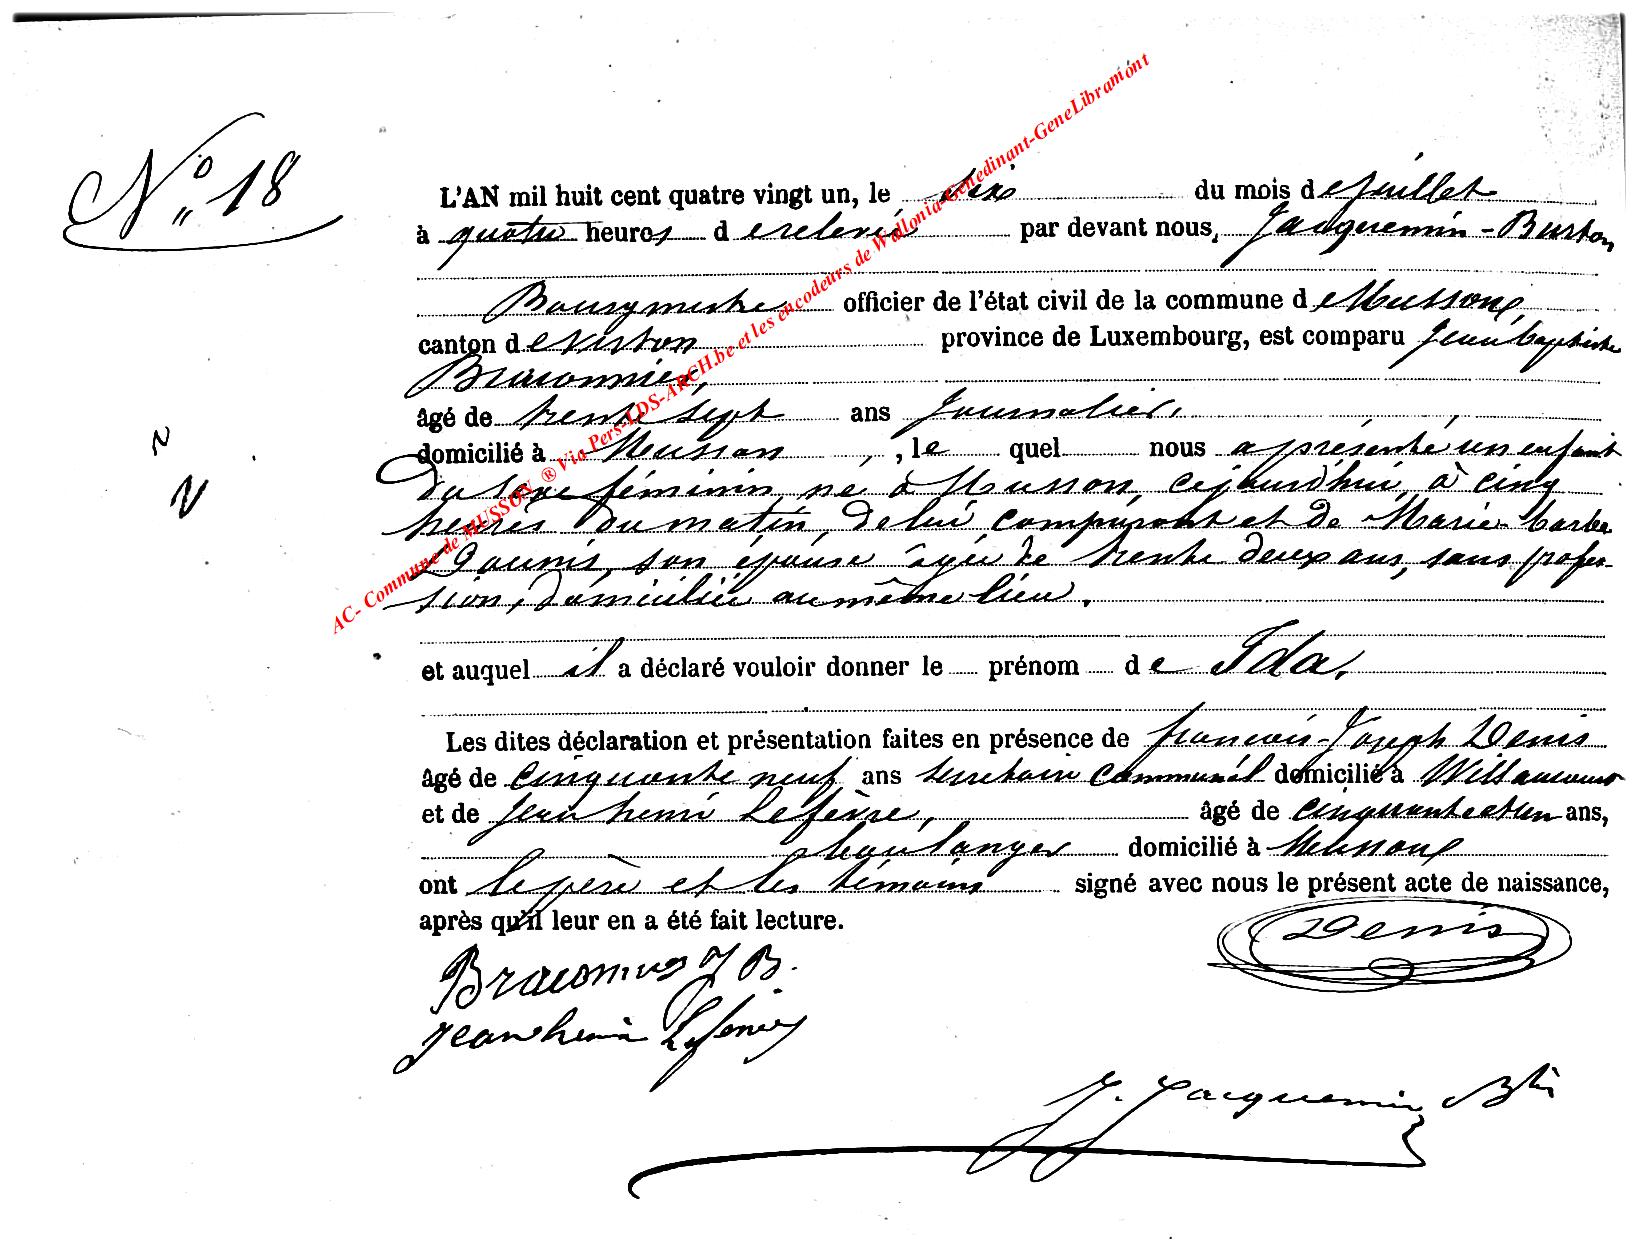 N° 18
L'AN mil huit cent quatre vingt un, le six du mois de juillet
à quatre heures de relevée par devant nous, Jacquemin - Burton
Bourgmestre officier de l'état civil de la commune de Musson,
canton de Virton province de Luxembourg, est comparu Jean baptiste
Braconnier,
âgé de trente sept ans Journalier,
domicilié à Musson, le quel nous a présenté un enfant
du sexe féminin, né à Musson, cejourd'hui, à cinq
heures du matin, de lui comparant et de Marie-barbe
son épouse âgée de trente deux ans, sans profes-
sion, domiciliée au même lieu.
et auquel il a déclaré vouloir donner le prénom de Ida.
Les dites déclaration et présentation faites en présence de françois-Joseph Denis
âgé de cinquante neuf ans secrétaire communal domicilié à Willancourt
et de Jean henri Lefèvre, âgé de cinquante et un ans,
boulanger domicilié à Musson
ont le père et les témoins signé avec nous le présent acte de naissance,
après qu'il leur en a été fait lecture.
Denis
Braconnier J B.
Jean henri Lefevre
J. Jacquemin Btn
N
N
AC- Commune de MUSSON ® Via Pers-LDS-ARCH.be et les encodeurs de Wallonia-Genedinant-GeneLibramont